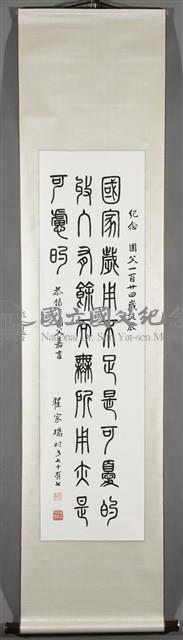 紀念 國父一百廿四歲誕辰
國家歲用不足是可憂的
收入有餘而無所用亦是
可慮的
恭錄 國父嘉言
翟家瑞時年七十有七
國立國父紀
National Dr. Sun Yat-sen Mem